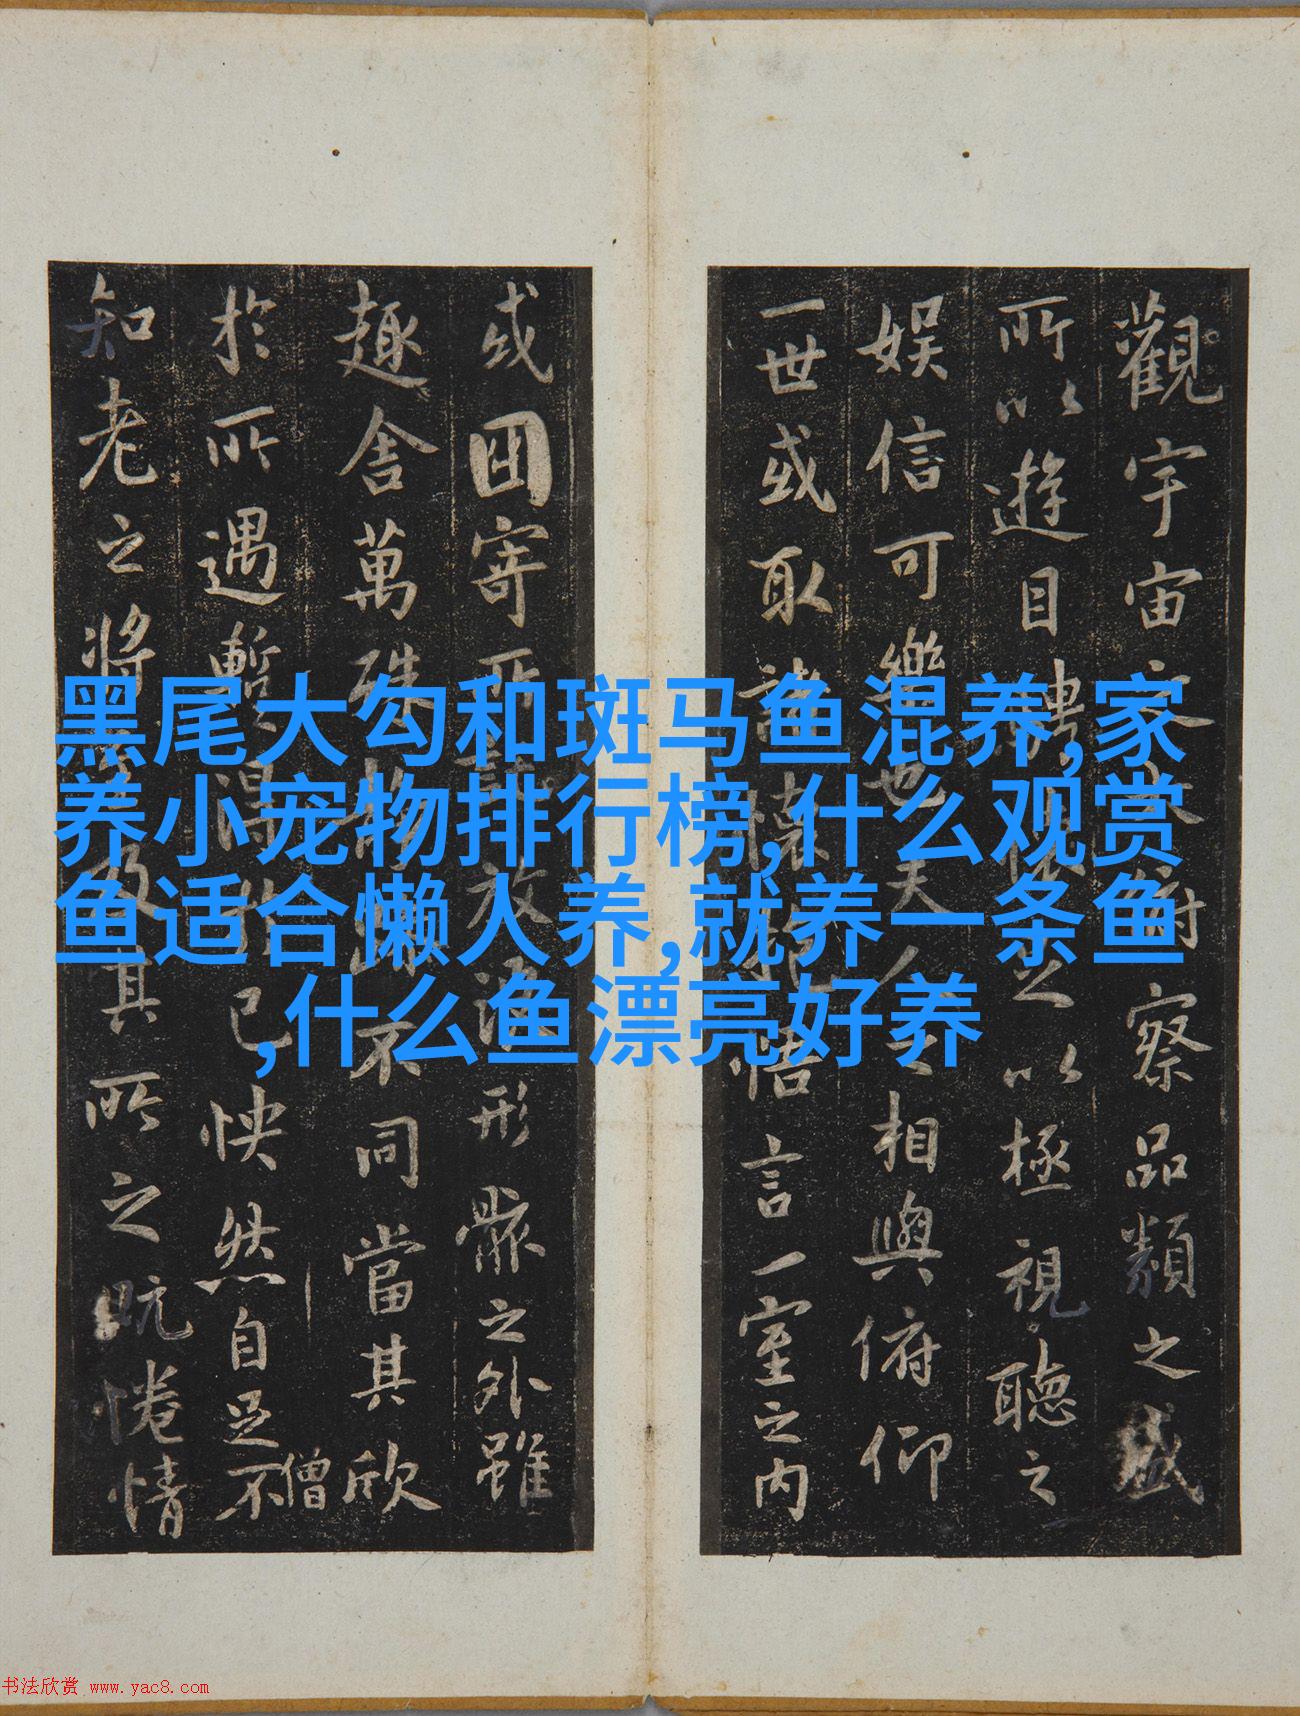 觀宇宙之大俯察品類之盛
所以遊目騁懷足以極視聽之
娱信可樂也夫人之相與俯仰
一世或取諸懷抱悟言一室之内
或因寄所託放浪形骸之外雖
趣舍萬殊静躁不同當其欣
僧
於所遇暫得於己怏然自足不
知老之將至及其所之既惓情
黑尾大勾和斑马鱼混养,家
养小宠物排行榜,什么观赏
鱼适合懒人养,就养一条鱼
,什么鱼漂亮好养
书法欣赏 www.yac8.com